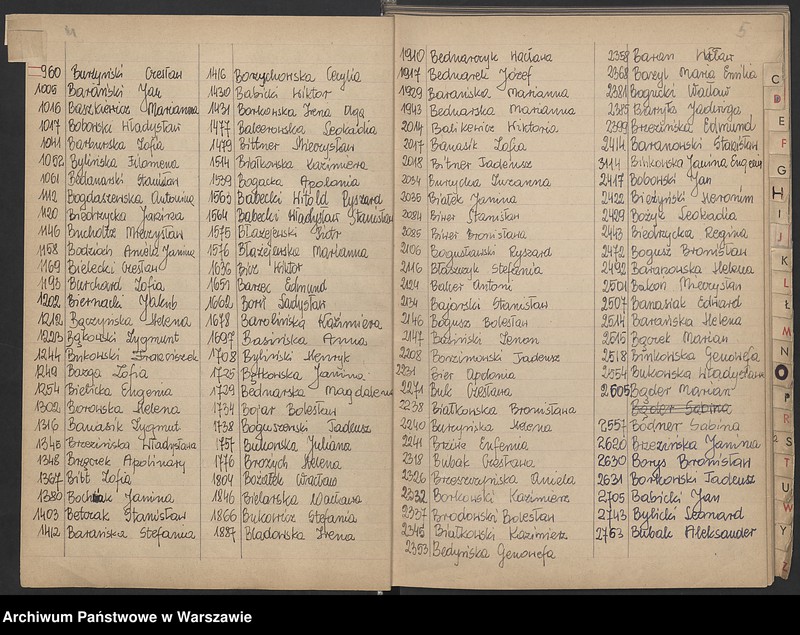 5
960 Burzyński Czesław
1005 Barański Jan
1016 Baszkiewicz Marianna
1017 Boborski Władysław
1041 Barburska Zofia
1052 Bylińska Filomena
1061 Bednarski Stanisław
1112 Bogdaszewska Antonina
1120 Biedrzycka Janina
1146 Bucholtz Mieczysław
1158 Bodzioch Aniela Janina
1169 Bielecki Czesław
1193 Burchard Zofia
1202 Biernacki Jakub
1212 Bączyńska Helena
1225 Bąkowski Zygmunt
1244 Bukowski Franciszek
1249 Bazga Zofia
1254 Bielicka Eugenia
1302 Borowska Helena
1316 Banasik Zygmut
1345 Brzezińska Władysława
1348 Bręgorek Apolinary
1367 Bibt Zofia
1380 Janina
1403 Betorak Stanisław
1412 Barańska Stefania
1416 Borzychowska Cecylia
1430 Babicki Wiktor
1431 Borkowska Irena Olga
1477 Balcerowska Leokadia
1479 Bittner Mieczysław
1514 Białkowska Kazimiera
1539 Bogacka Apolonia
1563 Babecki Witold Ryszard
1564 Babecki Władysław Stanisław
1575 Błażejewski Piotr
1576 Błażejewska Marianna
1636 Wiktor
1651 Barzec Edmund
1662 Władysław
1678 Barolińska Kazimiera
1697 Basińska Anna
1708 Byliński Henryk
1725 Bętkowska Janina
1729 Bednarska Magdalena
1734 Bojar Bolesław
1738 Boguszewski Tadeusz
1757 Bukowska Juliana
1776 Brożych Helena
1804 Bożatek Wacław
1846 Bielarska Wacława
1866 Bukowicz Stefania
1887 Bladowska Irena
1910 Bednarczyk Wacława
1917 Bednarek Józef
1929 Barańska Marianna
1943 Bednarska Marianna
2014 Balikewicz Wiktoria
2017 Banasik Zofia
2018 Bitner Tadeusz
2034 Burzycka Zuzanna
2035 Białek Janina
2084 Biner Stanisław
2085 Biner Bronisława
2106 Bogusławski Ryszard
2116 Błaszczyk Stefania
2124 Balcer Antoni
2134 Bajorski Stanisław
2146 Bogusz Bolesław
2147 Basiński Zenon
2208 Borzimowski Tadeusz
2231 Bier Apolonia
2271 Buk Czesława
2238 Białkowska Bronisława
2240 Burzyńska Helena
2241 Eufemia
2318 Bubak Czesława
2326 Brogszczyńska Aniela
2332 Borkowski Kazimierz
2337 Brodowski Bolesław
2345 Białkowski Kazimierz
2353 Bedyńska Genowefa
2358 Baran
2368 Barzyl Maria Emilia
2381 Bogucki Wacław
2385 Baryła Jadwiga
2399 Brzezińska Edmund
2414 Baranowski Stanisław
3114 Bilikowska Janina Eugenia
2417 Bobowski Jan
2422 Bieżyński Hieronim
2429 Bożyk Leokadia
2443 Biedrzycka Regina
2472 Bogusz Bronisław
2492 Baranowska Helena
2501 Bakon Mieczysław
2507 Banasiak Edward
2514 Barańska Helena
2515 Bącrek Marian
2518 Bińkowska Genowefa
2554 Bukowska Władysława
2605 Bąder Marian
Bąder Sabina
2557 Bödner Sabina
2620 Brzezińska Janina
2630 Borys Bronisław
2631 Borkowski Tadeusz
2705 Babicki Jan
2743 Bylicki Leonard
2763 Bubak Aleksander
C
D
E
F
G
H
I
J
K
L
Ł
M
N
O
P
R
S
T
U
W
Y
Z
Archiwum Państwowe w Warszawie